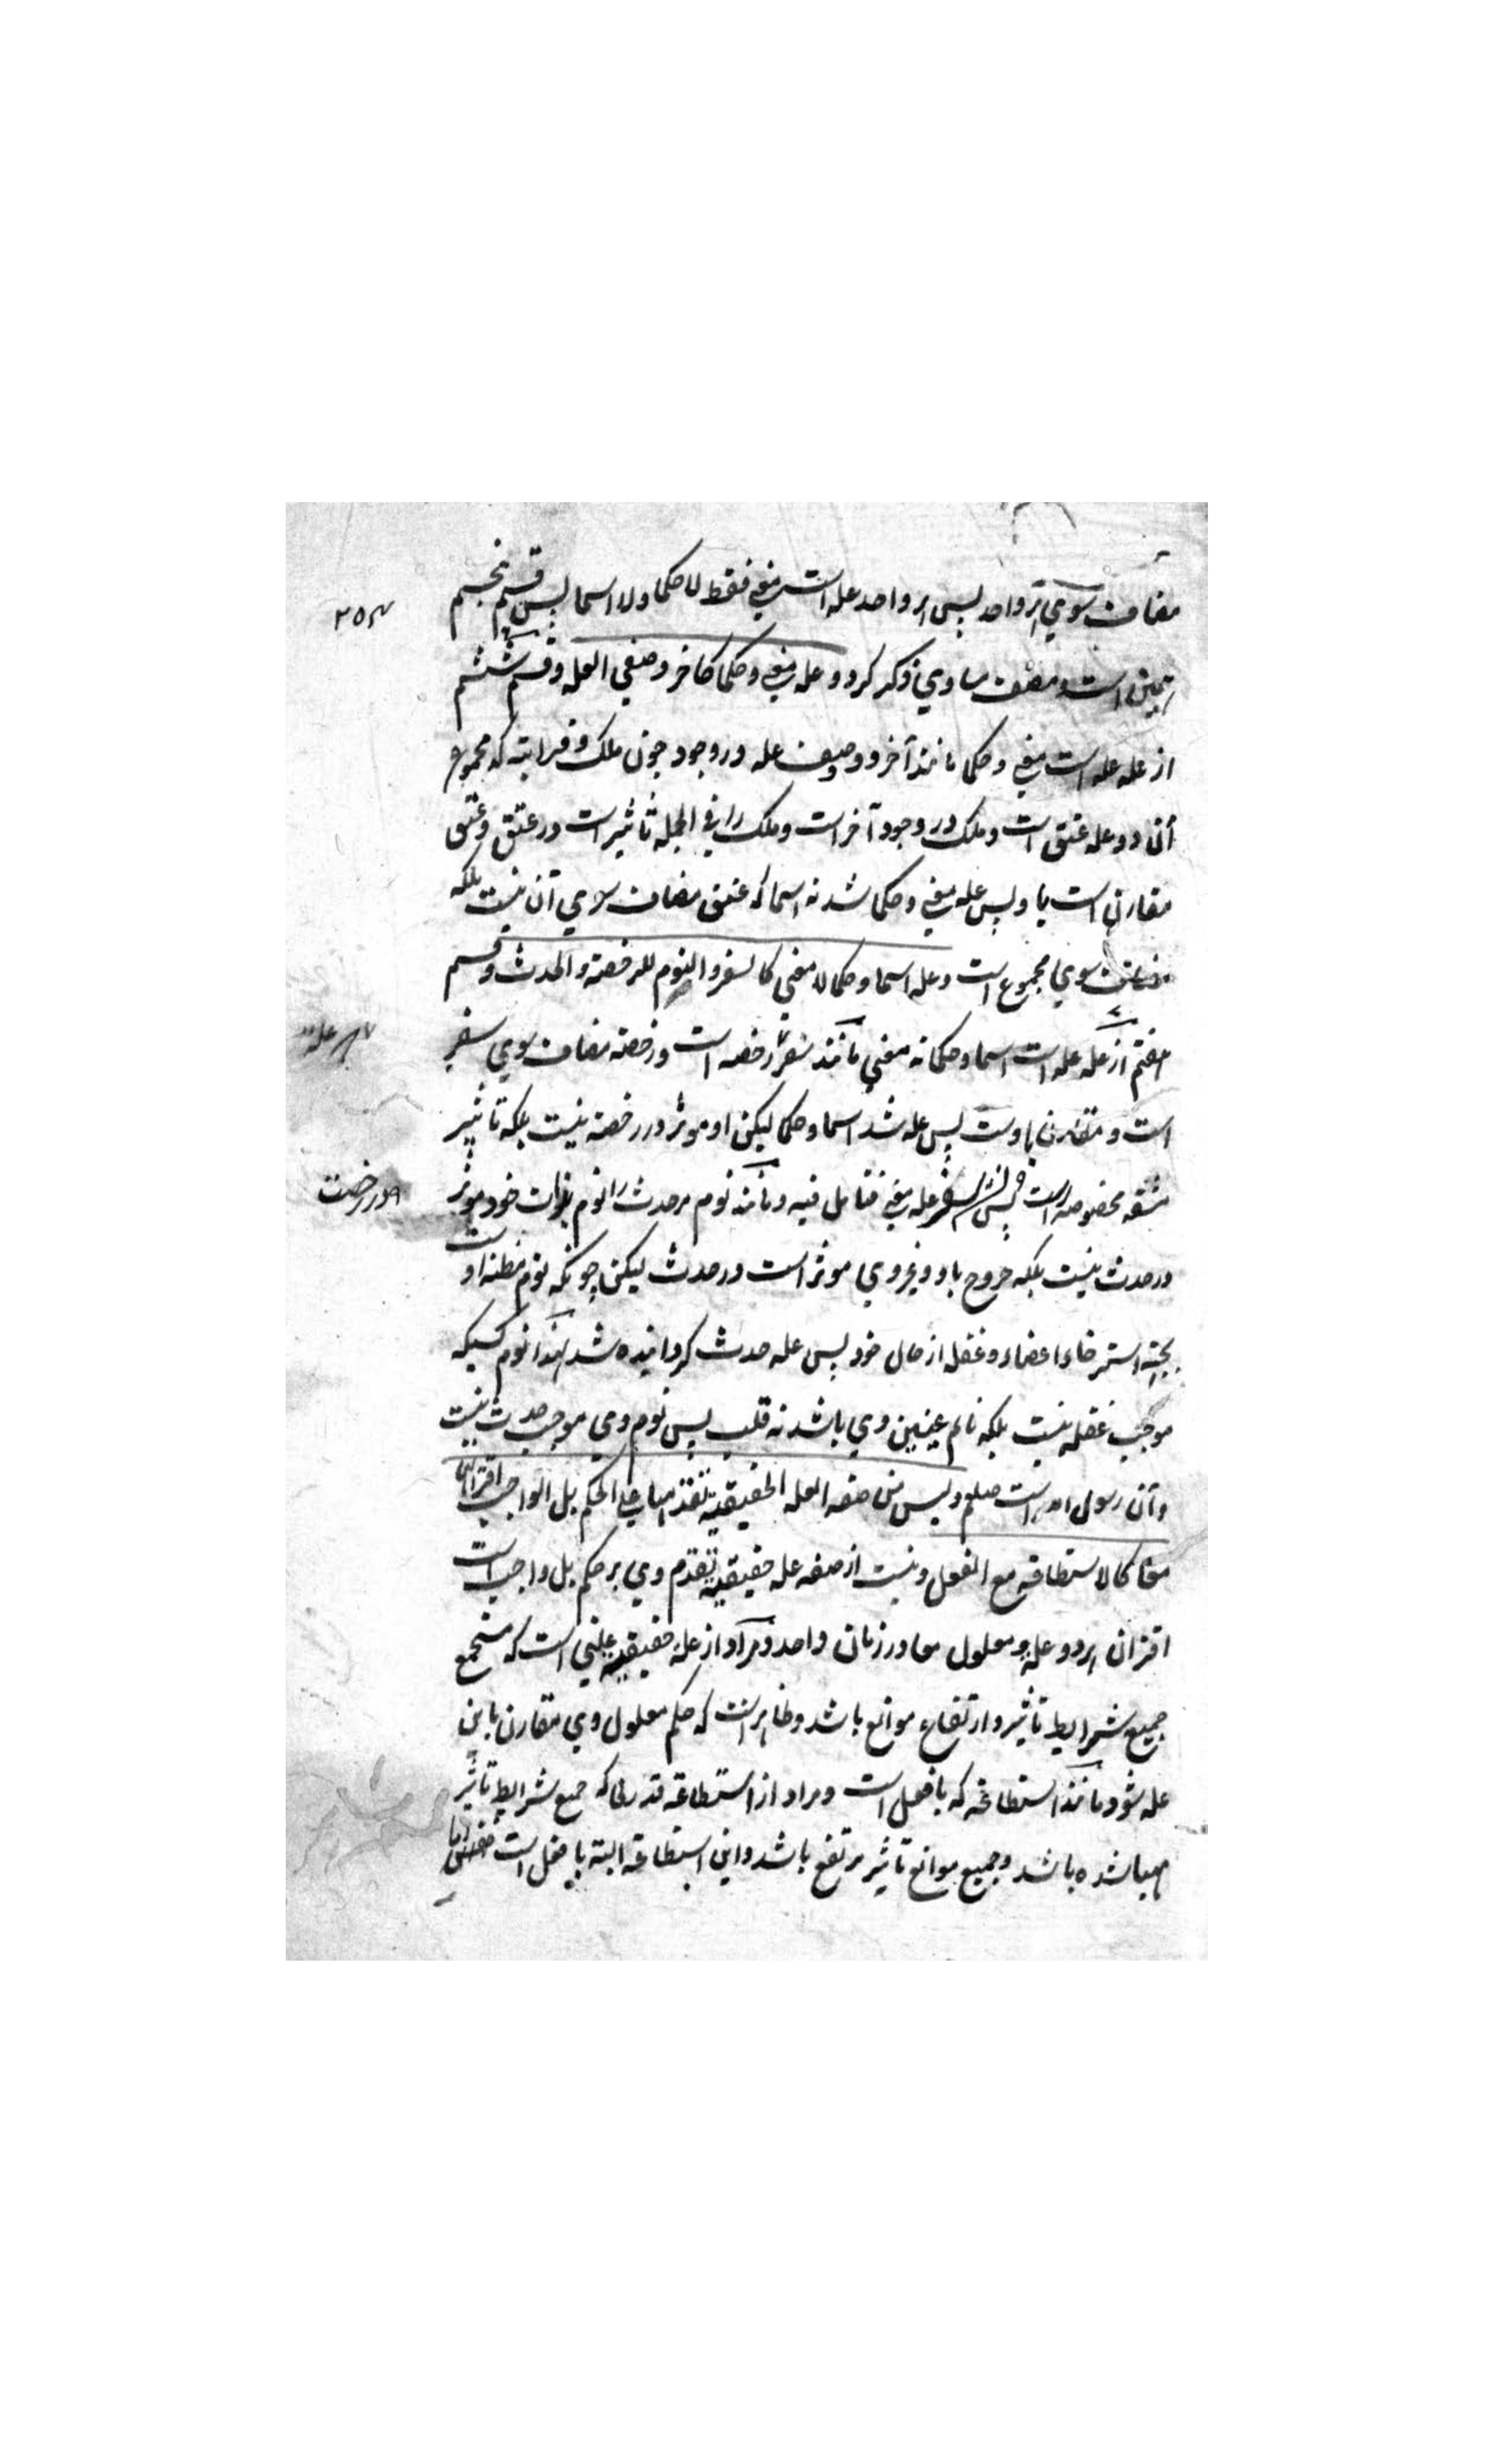 مضاف سوي هر واحد پس هر واحد عله است معني فقط لا حكما ولا اسما پس قسم پنجم
همين است ومصنف مساوي ذكر كرد وعله معني وحكما كاخر وصفي العله وقسم ششم
از عله عله است معني وحكما مانند آخر دو وصف عله در وجود چون ملك وقرابته كه مجموع
آن دو عله عتق است وملك در وجود آخر است وملك را في الجمله تاثير است در عتق وعتق
مقارن است باو پس عله معني وحكما شد نه اسما كه عتق مضاف سوي آن نيست بلكه
مضاف سوي مجموع است وعله اسما وحكما لا معني كالسفر والنوم للرخصة والحدث وقسم
هفتم از عله عله است اسما وحكما نه معني مانند سفر رخصه است ورخصه مضاف سوي سفر
است ومقارن باوست پس عله شد اسما وحكما ليكن او موثر در رخصه نيست بلكه تاثير
مشقه مخصوصه راست پس سفر عله معني فتامل فيه ومانند نوم مر حدث را نوم بذات خود موثر
در حدث نيست بلكه خروج باد وغيروي موثر است در حدث ليكن چونكه نوم مظنه او است
بجهة استرخاء اعضاء وغفله از حال خود پس عله حدث گردانيده شد لهذا نوم كسيكه
موجب غفله نيست بلكه نائم عينين وي باشد نه قلب پس نوم وي موجب حدث نيست
وآن رسول الله است صلعم وليس من صفه العله الحقيقية تقدمها علي الحكم بل الواجب اقترانهما
معا كالاستطاقه مع الفعل ونيست از صفه عله حقيقية تقدم وي بر حكم بل واجب است
اقتران هر دو عله ومعلول معا در زمان واحد ومراد از عله حقيقية علتي است كه مستجمع
جميع شرايط تاثير وارتفاع موانع باشد وظاهر است كه حكم معلول وي مقارن باين
عله شود مانند استطاعه كه با فعل است ومراد از استطاعه قدرتا كه جميع شرايط تاثير
مهيا شده باشد وجميع موانع تاثير مرتفع باشد واين استطاعه البته با فعل است
عله
در رخصت